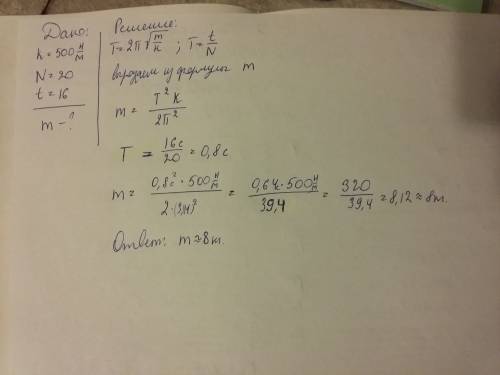 Дано:
k = 500 Н/м
N = 20
t = 16
m - ?
Решение:
T = 2π√(m/k) ; T = t/N
выразим из формулы m
m = T² k / 2π²
T = 16с / 20 = 0,8 с
m = 0,8с² · 500 Н/м / 2·(3,14)² = 0,64 · 500 Н/м / 39,4 = 320 / 39,4 = 8,12 ≈ 8 кг.
Ответ: m ≈ 8 кг.